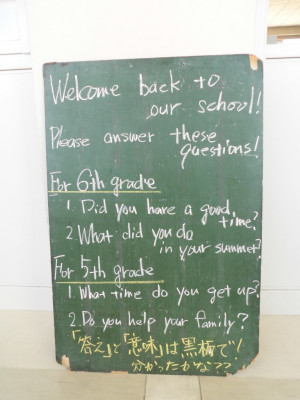 Welcome back to
our school!
Please answer these
questions!
For 6th grade
1. Did you have a good
time?
2. What did you do
in your summer?
For 5th grade
1. What time do you get up?
2. Do you help your family?
「答え」と「意味」は黒板で!
分かったかな??